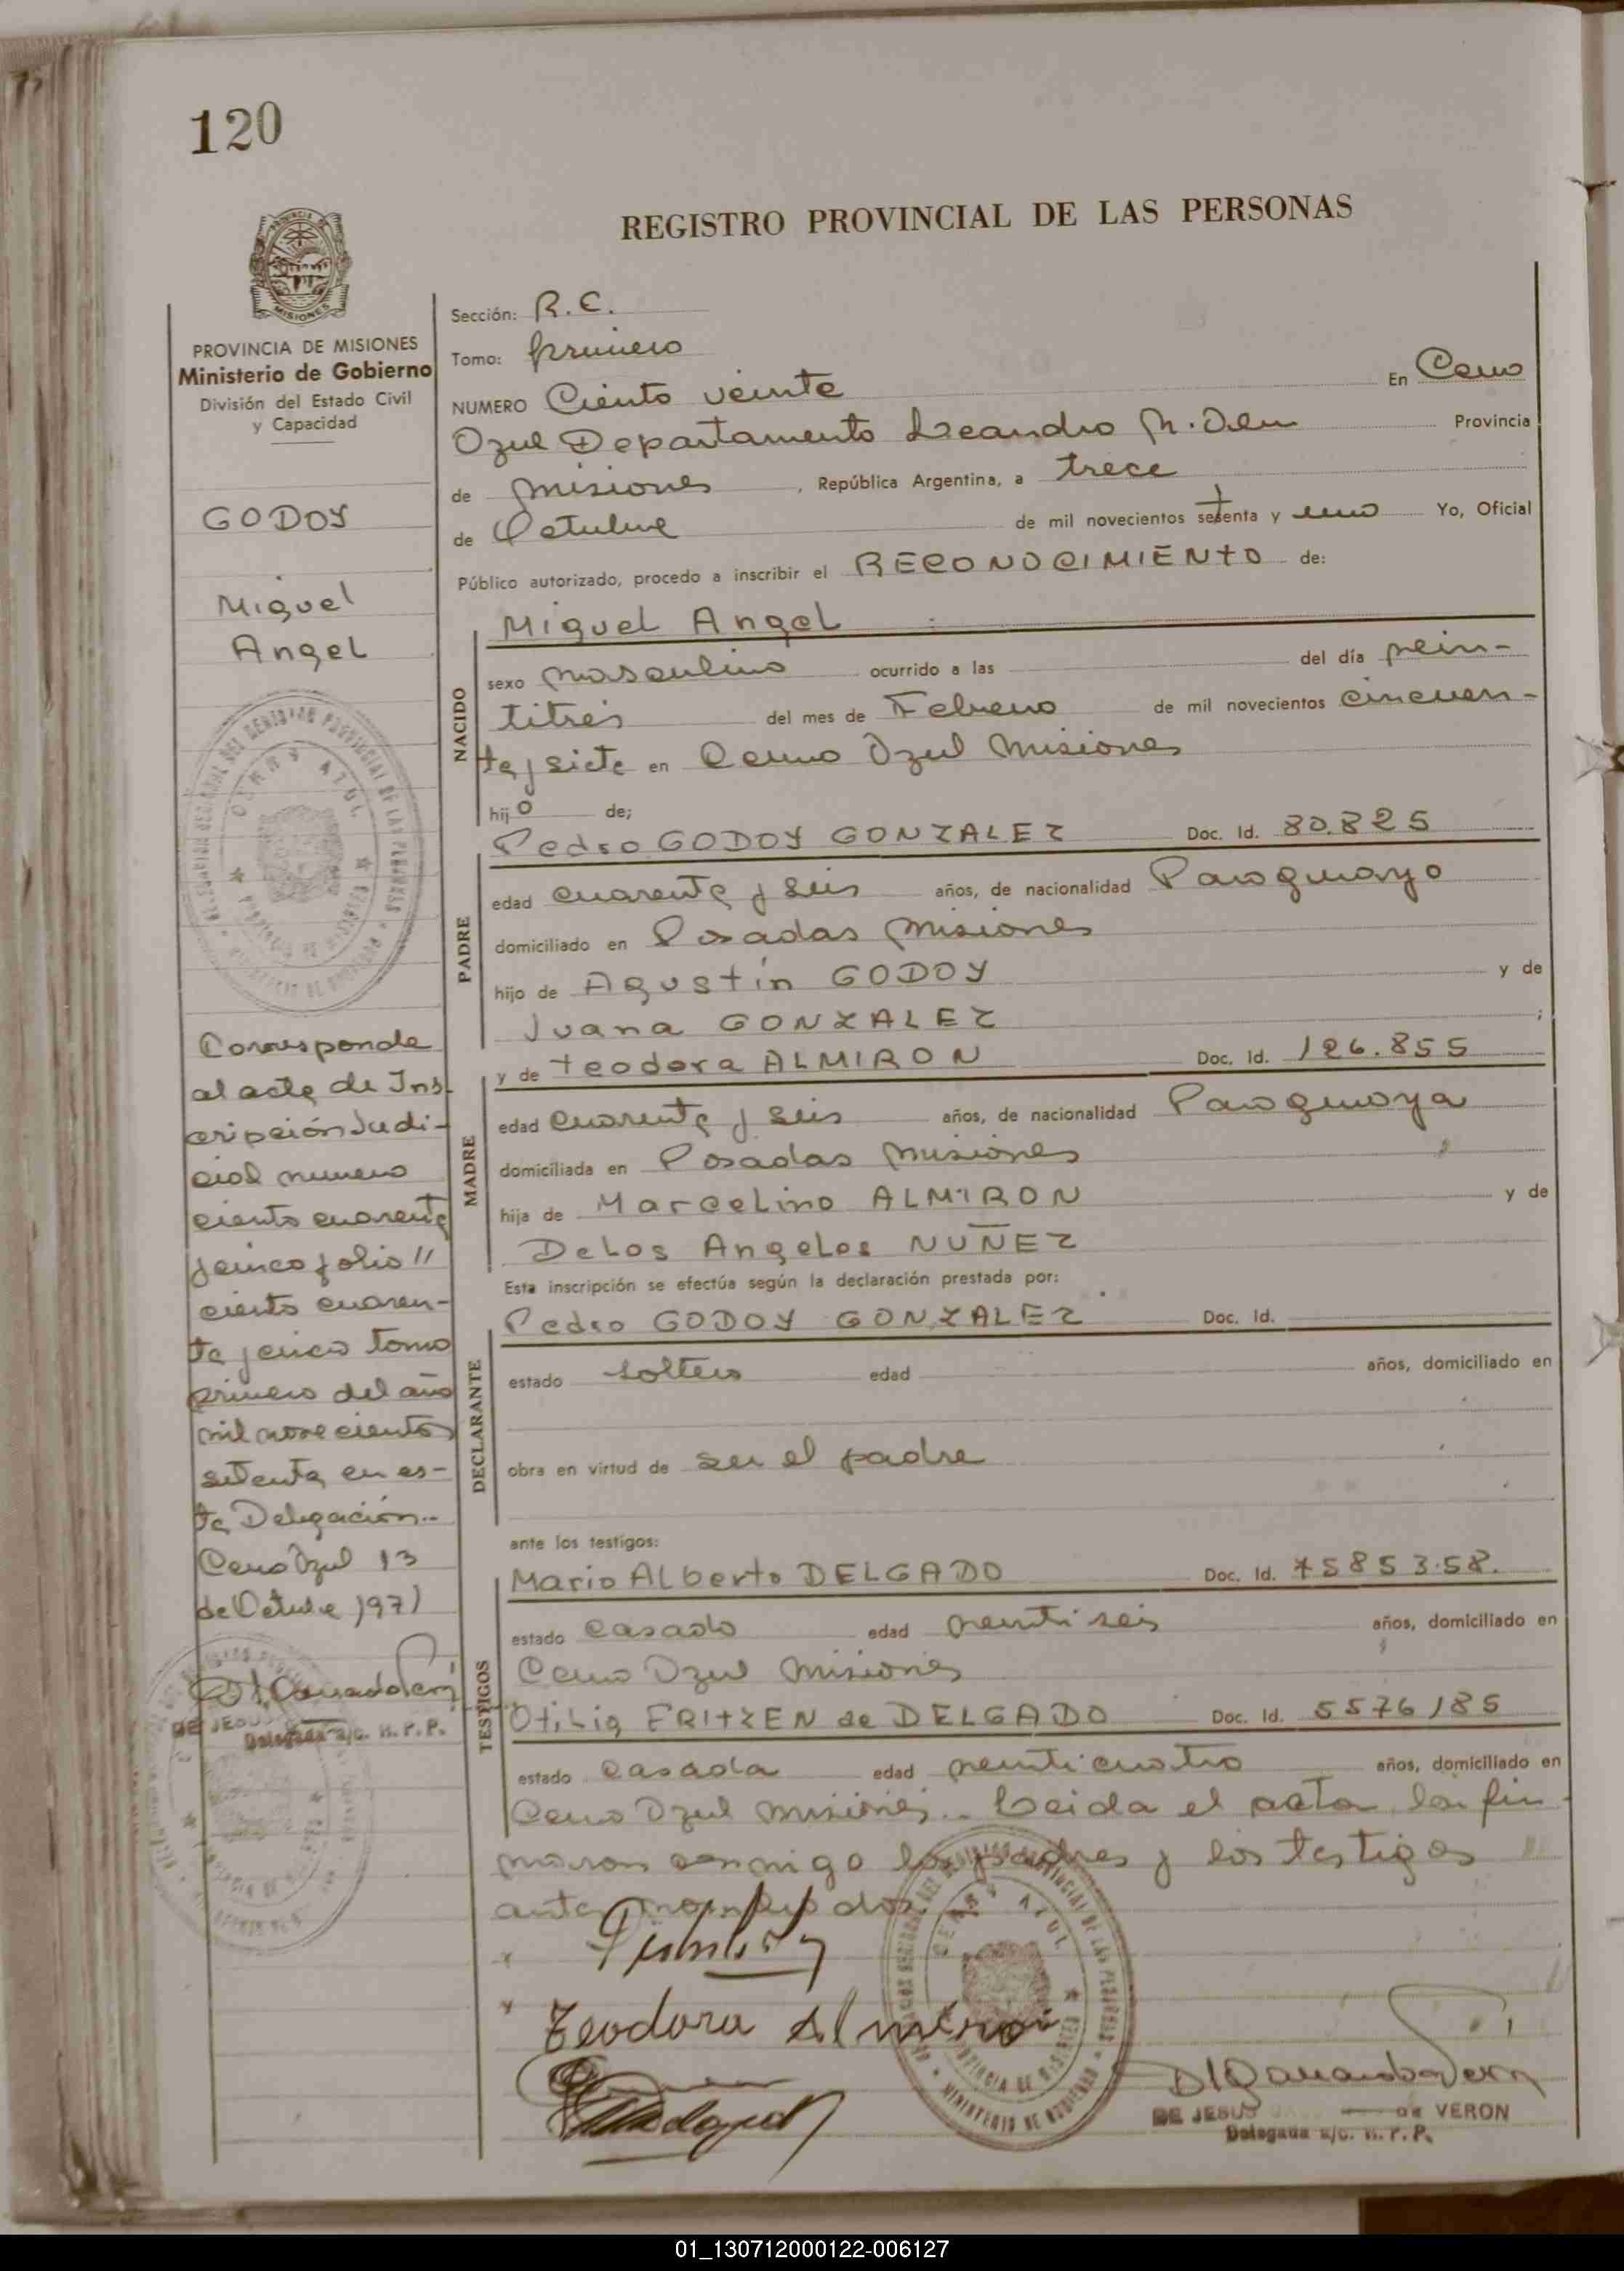 120
REGISTRO PROVINCIAL DE LAS PERSONAS
MISIONES
PROVINCIA DE MISIONES
Ministerio de Gobierno
División del Estado Civil
y Capacidad
GODOY
Miguel
Angel
Corresponde
al acta de Ins-
cripción Judi-
cial numero
ciento cuarenta
y cinco folio "
ciento cuaren-
ta y cinco tomo
primero del año
mil novecientos
setenta en es-
ta Delegación..
Cerro Azul 13
de Octubre 1971
DE JESUS
Delegada a/c. R.P.P.
Sección: R.C.
Tomo: primero
NUMERO Ciento veinte En Cerro
Azul Departamento Leandro N. Alem Provincia
de Misiones , República Argentina, a trece
de Octubre de mil novecientos setenta y uno Yo, Oficial
Público autorizado, procedo a inscribir el RECONOCIMIENTO de:
NACIDO
Miguel Angel
sexo masculino ocurrido a las del día vein-
titrés del mes de Febrero de mil novecientos cincuen-
ta y siete en Cerro Azul Misiones
hijo de;
PADRE
Pedro GODOY GONZALEZ Doc. Id. 80.825
edad cuarenta y seis años, de nacionalidad Paraguayo
domiciliado en Posadas Misiones
hijo de Agustín GODOY y de
Juana GONZALEZ ;
MADRE
y de Teodora ALMIRON Doc. Id. 126.855
edad cuarenta y seis años, de nacionalidad Paraguaya
domiciliada en Posadas Misiones
hija de Marcelino ALMIRON y de
DeLos Angeles NUÑEZ
Esta inscripción se efectúa según la declaración prestada por:
DECLARANTE
Pedro GODOY GONZALEZ Doc. Id.
estado soltero edad años, domiciliado en
obra en virtud de ser el padre
ante los testigos:
TESTIGOS
Mario Alberto DELGADO Doc. Id. 7585358.
estado casado edad veintiseis años, domiciliado en
Cerro Azul Misiones
Otilia FRITZEN de DELGADO Doc. Id. 5576185
estado casada edad veinticuatro años, domiciliado en
Cerro Azul Misiones.. Leida el acta la fir-
maron conmigo los padres y los testigos "
antes nombrados.
Teodora Almiron
DE JESUS de VERON
Delegada a/c. R.P.P.
01_130712000122-006127